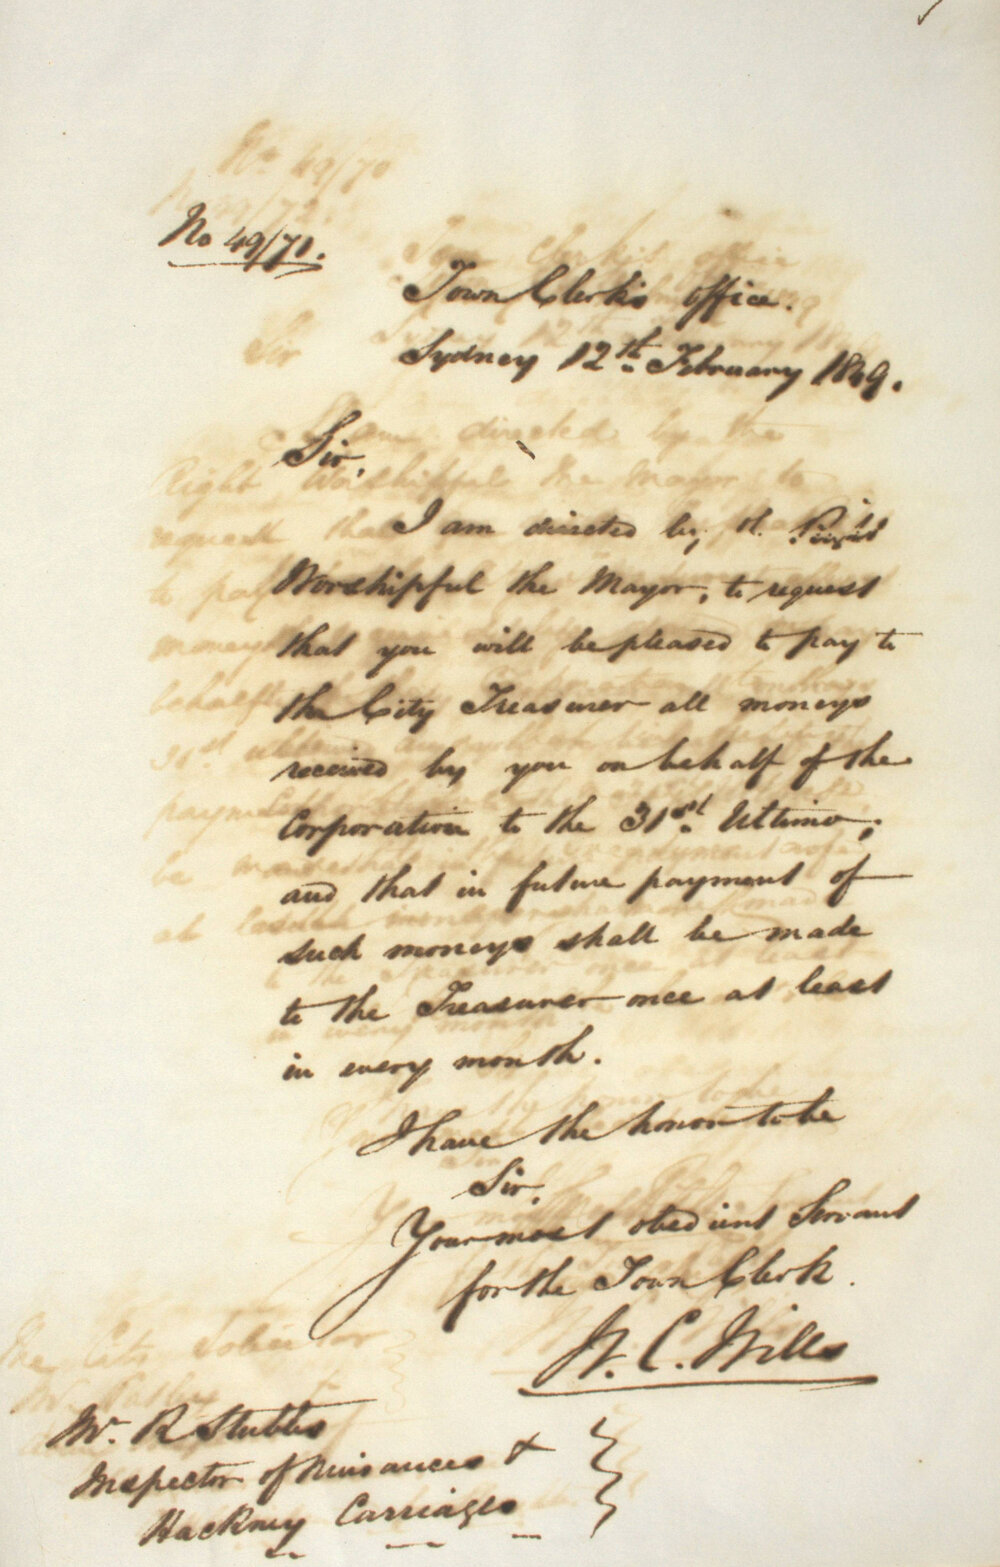 No 49/71.
Town Clerk's office.
Sydney 12th February 1849.
Sir,
I am directed by the Right
Worshipful the Mayor, to request
that you will be pleased to pay to
the City Treasurer all moneys
received by you on behalf of the
Corporation to the 31st Ultimo;
and that in future payment of
such moneys shall be made
to the Treasurer once at least
in every month.
I have the honor to be
Sir,
Your most obedient Servant
for the Town Clerk.
W. C. Wills
Mr. R Stubbs
Inspector of Nuisances &
Hackney Carriages